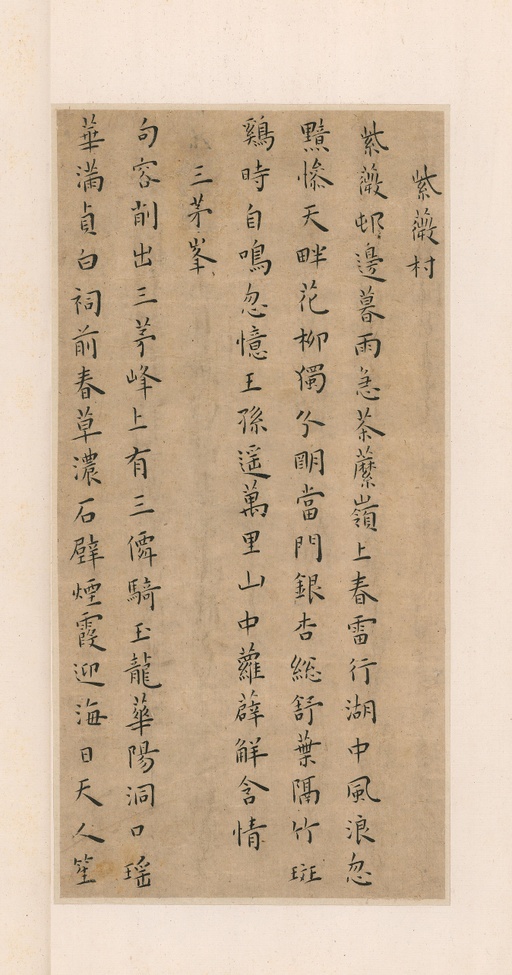 紫薇村
紫薇邨邊暮雨急茶䕷嶺上春雷行湖中風浪忽
黯慘天畔花柳獨分明當門銀杏總舒葉隔竹斑
鷄時自鳴忽憶王孫遥萬里山中蘿薜解含情
三茅峯
句容削出三茅峰上有三僊騎玉龍華陽洞口瑶
華滿貞白祠前春草濃石壁煙霞迎海日天人笙